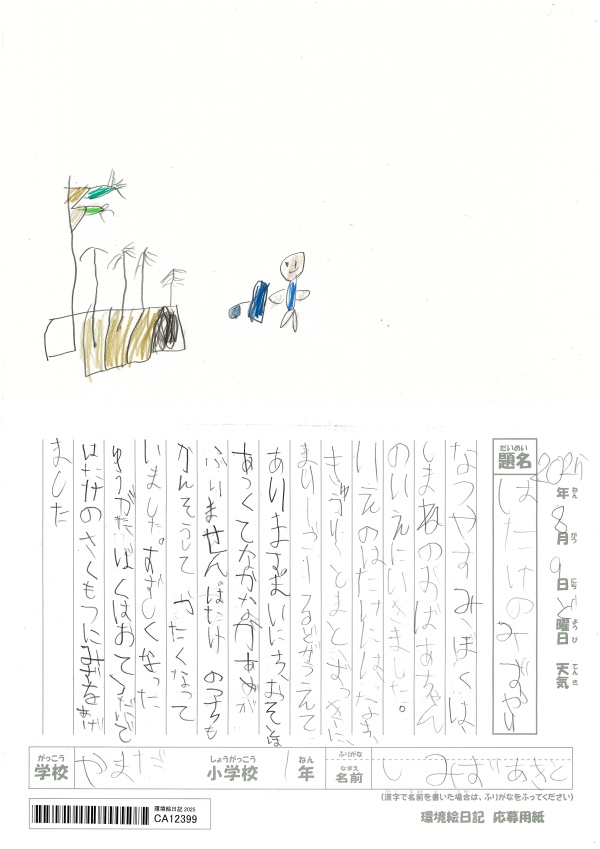 2025年8月9日ど曜日 天気
ねん がつ にち ようび てんき
だいめい
題名
はたけのみずやり
なつやすみ、ぼくは、
しまねのおばあちゃん
のいえにいきました。
いえのはたけには、なす
きゅうり、とまと、ずっきーに、
まりーごーるどがうえて
あります。まいにち、おそとは
あつくてなかなかあめが
ふりません。はたけのつちも
かんそうしてかたくなって
いました。すずしくなった
ゆうがた、ぼくはおてつだいで
はたけのさくもつにみずをあげ
ました
がっこう
学校
やまだ
しょうがっこう
小学校
1
ねん
年
ふりがな
なまえ
名前
しみずあきと
(漢字で名前を書いた場合は、ふりがなをふってください)
環境絵日記 2025
CA12399
環境絵日記 応募用紙